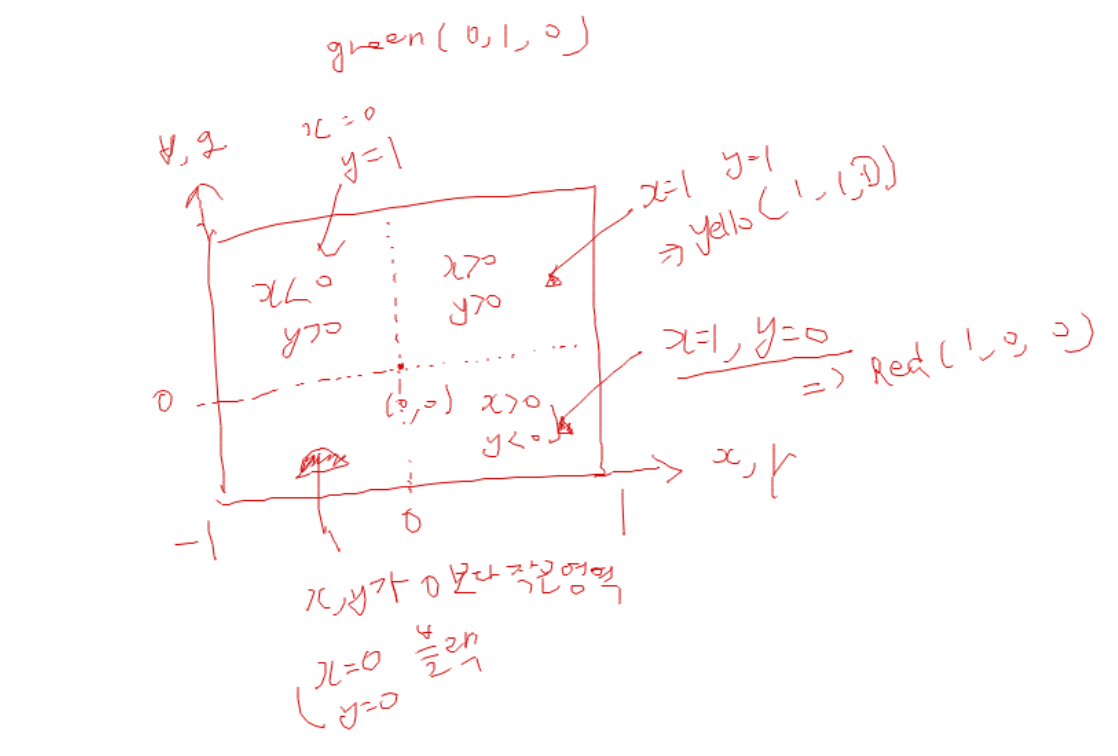 green(0,1,0)
x=0
y=1
y, g
x=1 y=1
=> yello(1,1,0)
x<0
y>0
x>0
y>0
x=1, y=0
=> Red(1,0,0)
0
(0,0)
x>0
y<0
x, r
-1
0
1
x,y가 0보다 작은영역
x=0 블랙
y=0